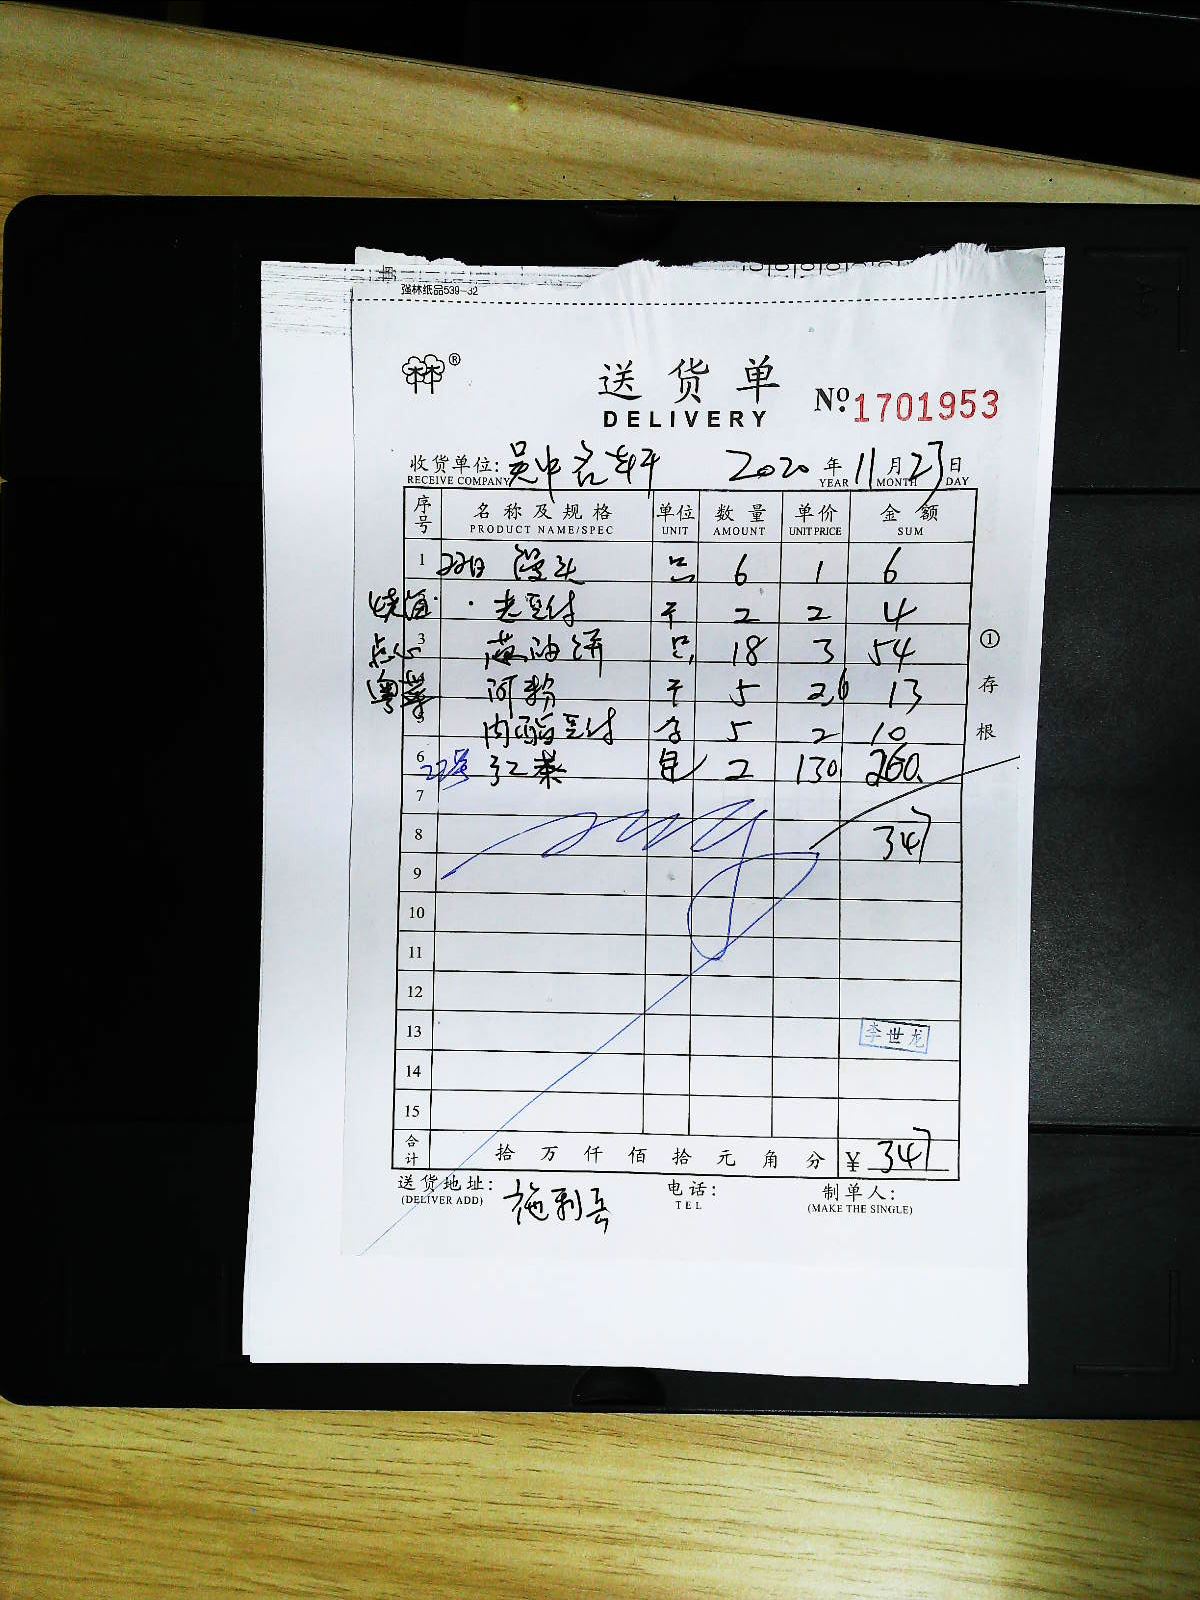 强林纸品539-32
林®
送货单
DELIVERY
Nº:1701953
收货单位: 吴中 2020年11月23日
RECEIVE COMPANY YEAR MONTH DAY
序号 名称及规格 单位 数量 单价 金额
PRODUCT NAME/SPEC UNIT AMOUNT UNIT PRICE SUM
1 馒头 只 6 1 6
老豆付 2 2 4
点心 3 葱油饼 只 18 3 54
粤菜 河粉 5 2.6 13
5 内酯豆付 5 2 10
6 22号 红菜 2 130 260
7
8 347
9
10
11
12
13 李世龙
14
15
合计 拾万仟佰拾元角分 ¥ 347
①存根
送货地址: 施利兵 电话: 制单人:
(DELIVER ADD) TEL (MAKE THE SINGLE)